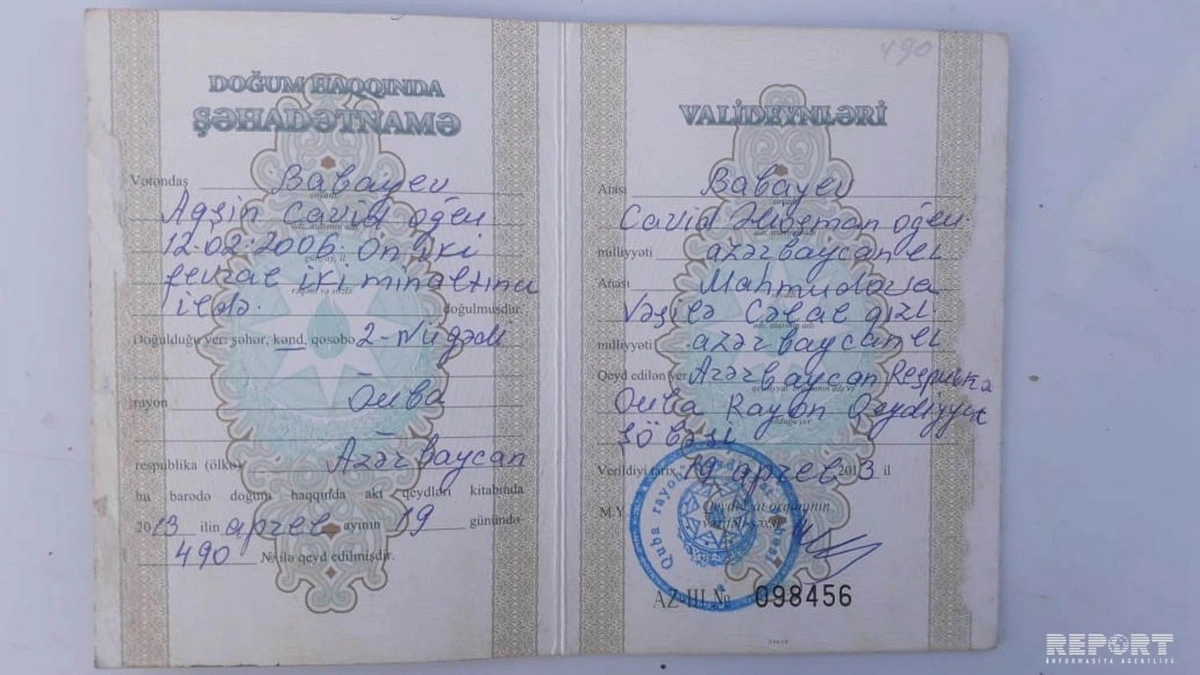 DOĞUM HAQQINDA
ŞƏHADƏTNAMƏ
Vətəndaş Babayev
Aqşin Cavid oğlu
12.02.2006. On iki
fevral iki min altıncı
ildə. doğulmuşdur.
Doğulduğu yer: şəhər, kənd, qəsəbə 2-Nügədi
rayon Quba
respublika (ölkə) Azərbaycan
bu barədə doğum haqqında akt qeydləri kitabında
2013 ilin aprel ayının 19 günündə
490 № ilə qeyd edilmişdir.
490
VALİDEYNLƏRİ
Atası Babayev
Cavid oğlu
milliyyəti azərbaycanlı
Anası Mahmudova
Cəlal qızı
milliyyəti azərbaycanlı
Qeyd edilən yer Azərbaycan
Quba Rayon Qeydiyyat
Şöbəsi
Verildiyi tarix "19 aprel 2013 il
M.Y.
Quba rayon
AZ-III № 098456
REPORT
İNFORMASİYA AGENTLİYİ